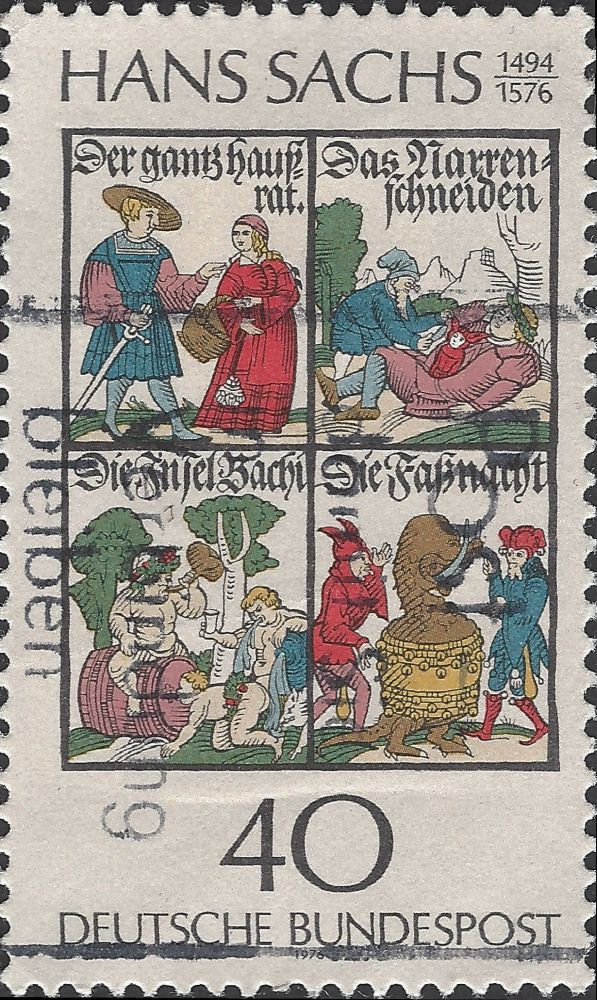 HANS SACHS
1494
1576
Der gantz hauß-
rat.
Das Narren-
schneiden
Die Insel Bachi
Die Faßnacht
bleiben
40
DEUTSCHE BUNDESPOST
1976